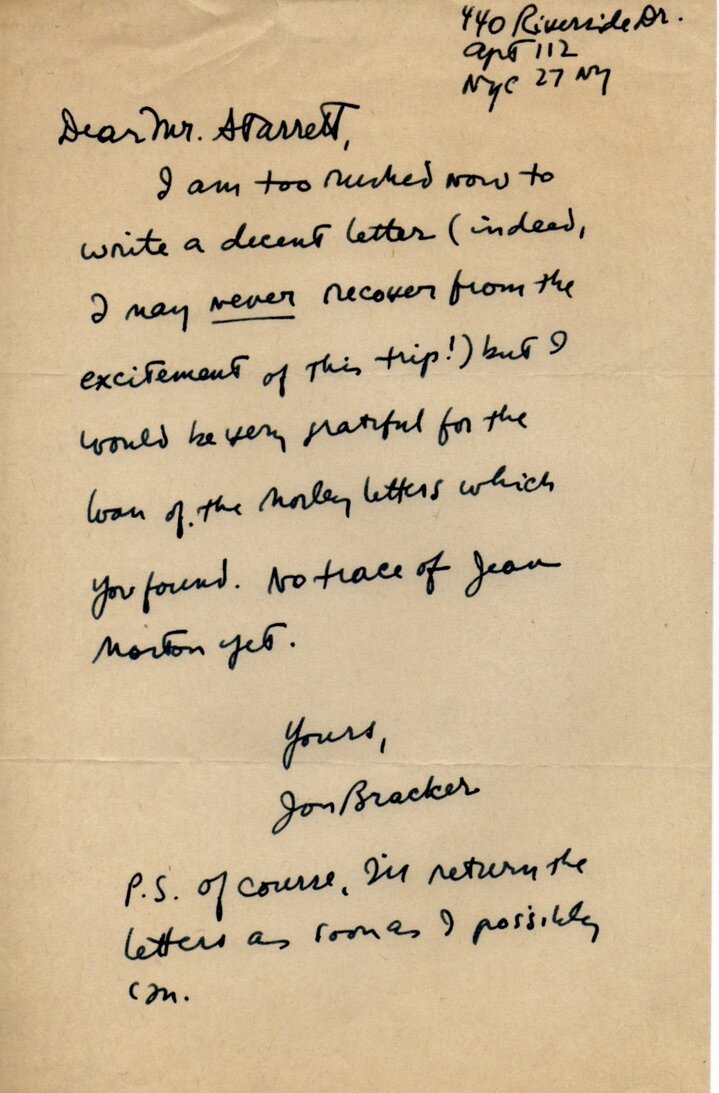 440 Riverside Dr.
Apt 112
NYC 27 NY
Dear Mr. Starrett,
I am too rushed now to
write a decent letter (indeed,
I may never recover from the
excitement of this trip!) but I
would be very grateful for the
loan of the Morley letters which
you found. No trace of Jean
Morton yet.
Yours,
Jon Bracker
P.S. Of course, I'll return the
letters as soon as I possibly
can.